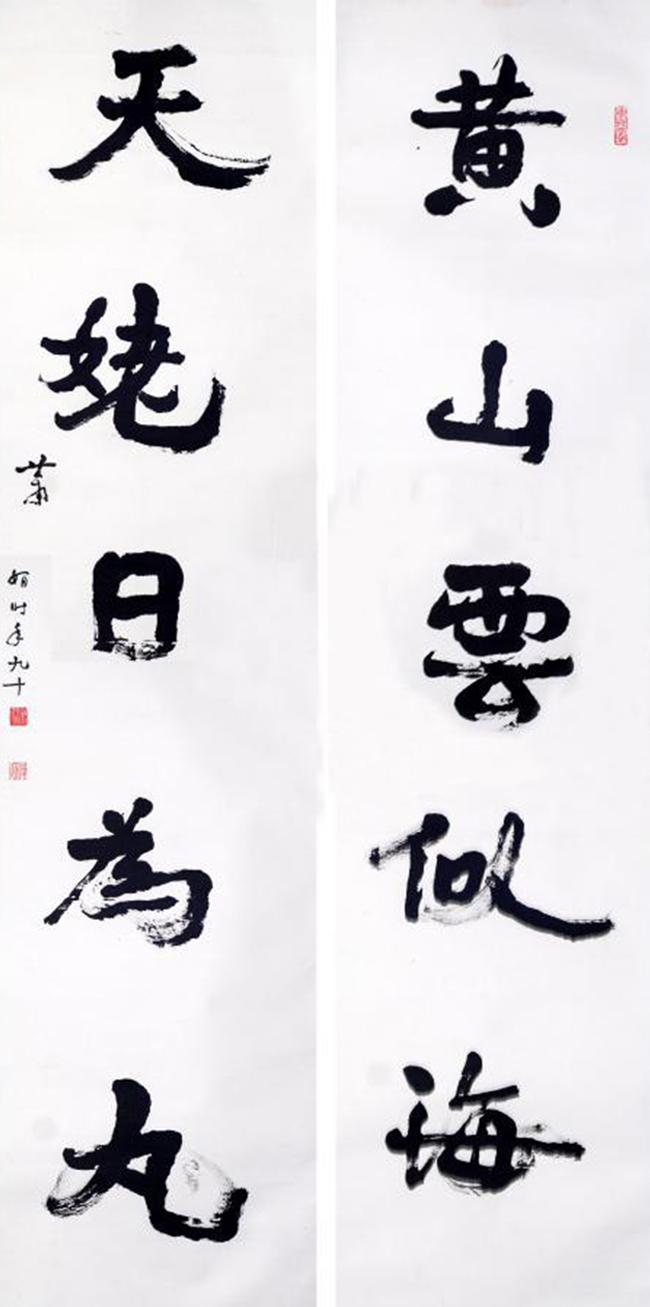 黄山雲似海
天姥日為丸
萧娴时年九十